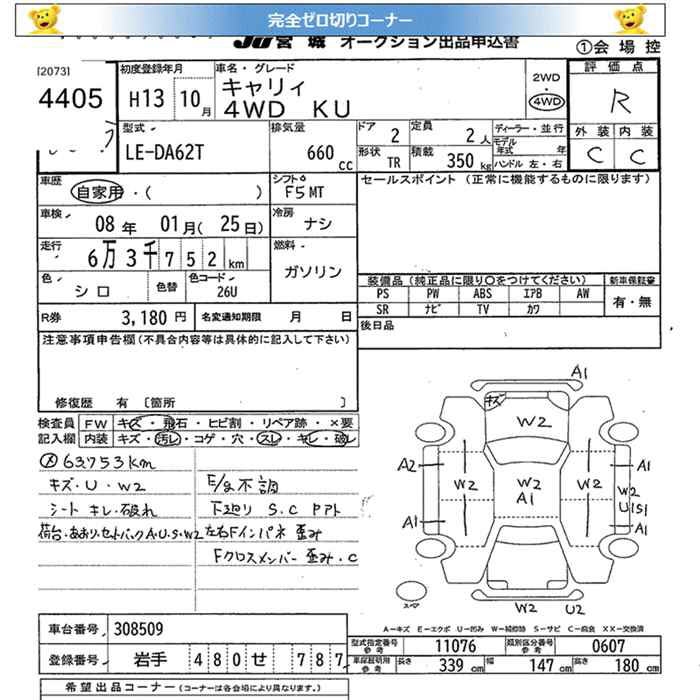 完全ゼロ切りコーナー
JU 宮城 オークション出品申込書
①会場控
[2073]
4405
初度登録年月
H13 10月
車名・グレード
キャリィ
4WD KU
2WD
・
4WD
評価点
R
外装 内装
C C
型式
LE-DA62T
排気量
660 cc
ドア 2
定員 2人
形状 TR
積載 350 kg
ディーラー・並行
モデル年式 年
ハンドル 左・右
車歴
自家用・( )
シフト
F5MT
セールスポイント (正常に機能するものに限ります)
車検
08年 01月(25日)
冷房
ナシ
走行
6万3千752km
燃料
ガソリン
色
シロ
色替
色コード
26U
装備品 (純正品に限り○をつけてください)
新車保証書
PS PW ABS エアB AW
SR ナビ TV カワ
有・無
R券 3,180円
名変通知期限 月 日
後日品
注意事項申告欄(不具合内容等は具体的に記入して下さい)
修復歴 有 〔箇所 〕
検査員記入欄
FW キズ・飛石・ヒビ割・リペア跡・×要
内装 キズ・汚レ・コゲ・穴・スレ・キレ・破レ
メ 63753km
キズ・U・W2
シート キレ・破れ
荷台・あおり・セットバックA・U・S・W2
E/g不調
下廻り S.C Pアト
左右Fインパネ 歪み
Fクロスメンバー 歪み・C
A1
キズ
W2
A2
A1
W2
W2
A1
W2
A1
W2
U1S1
A1
W2
U2
スペア
A-キズ E-エクボ U-凹み W-補修跡 S-サビ C-腐食 X-XX-交換済
車台番号 308509
登録番号 岩手 480せ 787
型式指定番号参考 11076
類別区分番号参考 0607
車検証明用参考
長さ 339 cm
幅 147 cm
高さ 180 cm
希望出品コーナー (コーナーは各会場により異なります。)